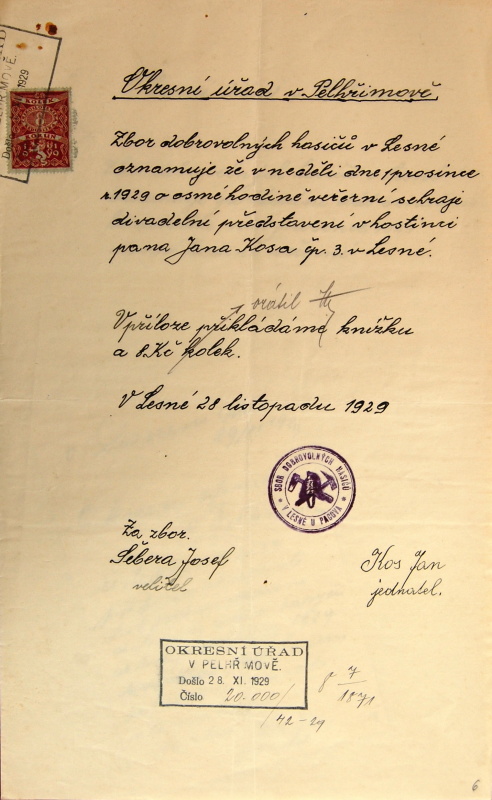 ÚŘAD
PELHŘIMOVĚ
Došlo 1929
KOLEK
8
KORUN
Okresní úřad v Pelhřimově
Zbor dobrovolných hasičů v Lesné
oznamuje že v neděli dne 1 prosince
r. 1929 o osmé hodině večerní sehraje
divadelní představení v hostinci
pana Jana Kosa čp. 3. v Lesné.
vrátil
V příloze přikládáme knížku
a 8 Kč kolek.
V Lesné 28 listopadu 1929
SBOR DOBROVOLNÝCH HASIČŮ
V LESNÉ U PACOVA
Za zbor.
Šebera Josef
velitel
Kos Jan
jednatel.
OKRESNÍ ÚŘAD
V PELHŘIMOVĚ.
Došlo 28. XI. 1929
Číslo 20.000/
/42-29
7
1871
6